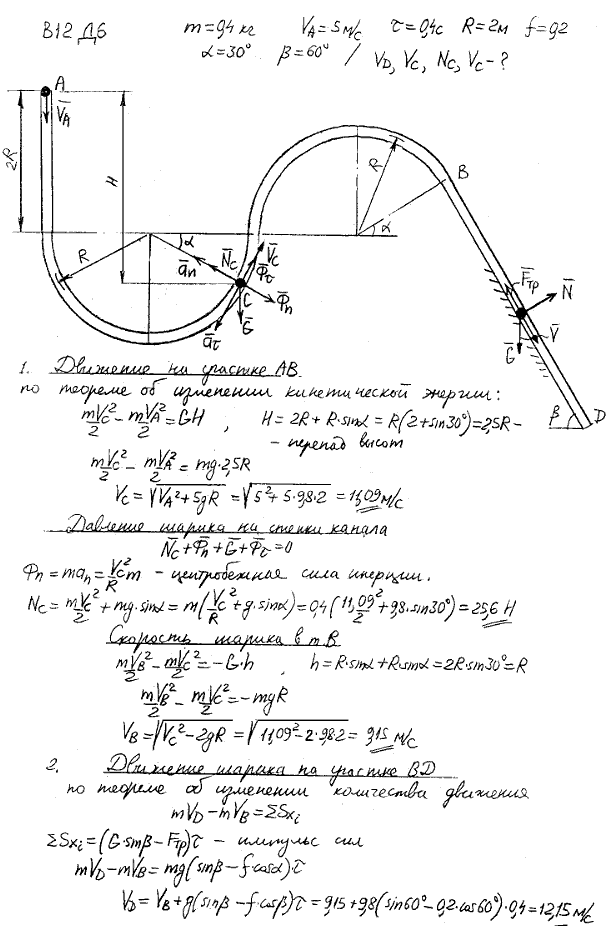 В12 Д6 m=0,4 кг V_A=5 м/с τ=0,4с R=2м f=0,2
α=30° β=60° / V_D, V_C, N_C, V_C-?
A
V̄_A
2R
H
R
α
ā_n
N̄_C
V̄_C
Φ̄_τ
Φ̄_n
C
Ḡ
ā_τ
R
B
α
F̄_тр
N̄
Ḡ
V̄
β
D
1. Движение на участке АВ
по теореме об изменении кинетической энергии:
mV_C²/2 - mV_A²/2 = GH , H = 2R + R·sinα = R(2+sin30°)=2,5R -
- перепад высот
mV_C²/2 - mV_A²/2 = mg·2,5R
V_C = √(V_A²+5gR) = √(5²+5·9,8·2) = 11,09 м/с
Давление шарика на стенки канала
N̄_C+Φ̄_n+Ḡ+Φ̄_τ=0
Φ_n = ma_n = V_C²/R m - центробежная сила инерции.
N_C = mV_C²/2 + mg·sinα = m(V_C²/R + g·sinα) = 0,4(11,09²/2 + 9,8·sin30°) = 25,6 Н
Скорость шарика в т В
mV_B²/2 - mV_C²/2 = -G·h , h = R·sinα + R·sinα = 2R·sin30° = R
mV_B²/2 - mV_C²/2 = -mgR
V_B = √(V_C²-2gR) = √(11,09²-2·9,8·2) = 9,15 м/с
2. Движение шарика на участке BD
по теореме об изменении количества движения
mV_D - mV_B = ΣSx_i
ΣSx_i = (G·sinβ - F_тр)τ - импульс сил
mV_D - mV_B = mg(sinβ - f·cosα)·τ
V_D = V_B + g(sinβ - f·cosβ)τ = 9,15 + 9,8(sin60° - 0,2·cos60°)·0,4 = 12,15 м/с